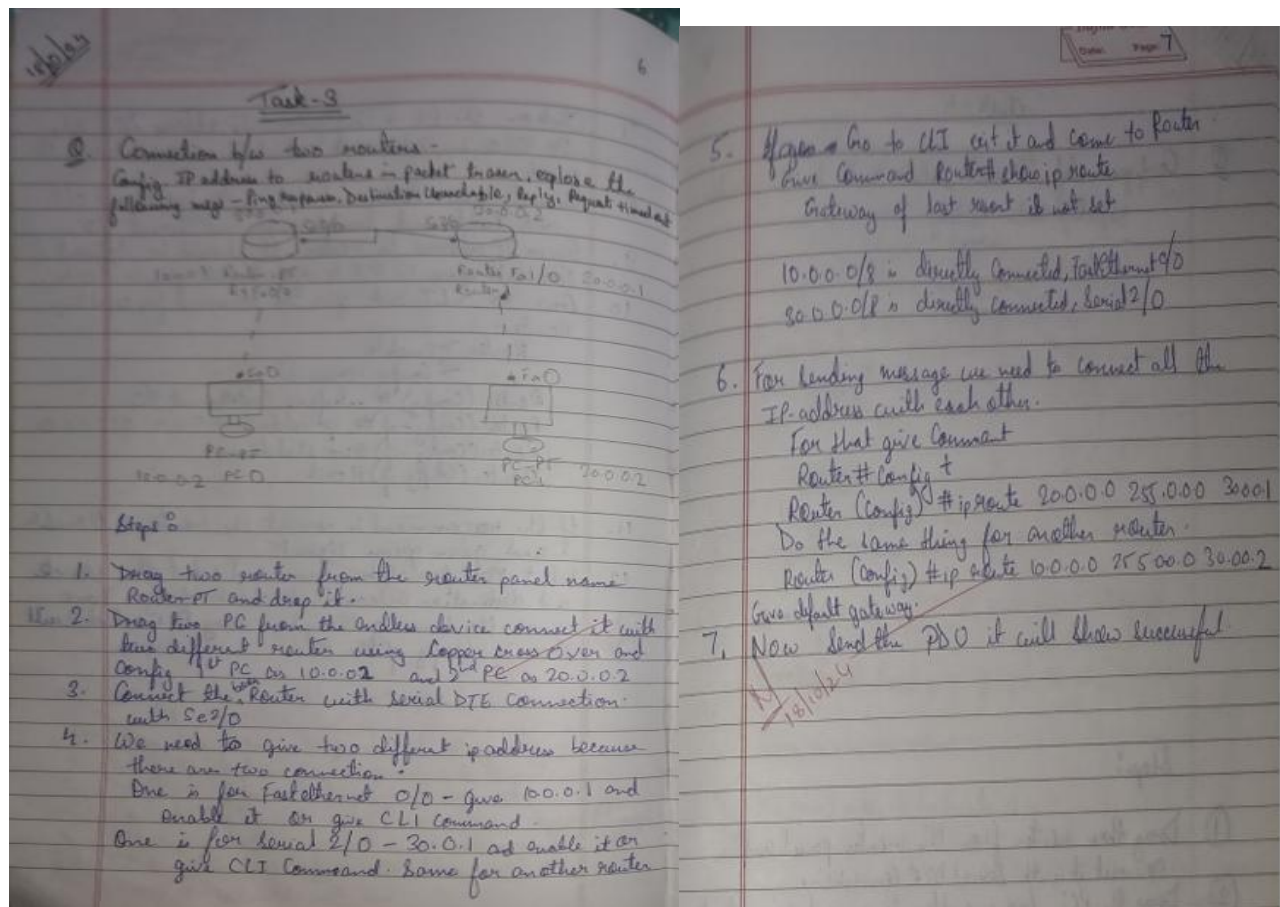 18/10/24
6
Task-3
Q. Connection b/w two routers -
Config IP address to routers in packet tracer, explore the
following msgs - Ping responses, Destination Unreachable, Reply, Request timed out
30.0.0.2
Se2/0
Se2/0
Router-PT
Router Fa1/0 20.0.0.1
Fa0
Fa0
PC-PT
PC-PT
10.0.0.2 PC0
PC1 20.0.0.2
Steps :
1. Drag two router from the router panel name
Router-PT and drop it.
2. Drag two PC from the endless device connect it with
two different router using Copper cross Over and
Config 1st PC as 10.0.02 and 2nd PC as 20.0.0.2
3. Connect the both Router with serial DTE Connection
with Se2/0
4. We need to give two different ip address because
there are two connection.
One is for Fastethernet 0/0 - give 10.0.0.1 and
enable it or give CLI Command.
One is for Serial 2/0 - 30.0.1 ad enable it or
give CLI Command. Same for another router
Date: Page: 7
5. Go to CLI exit it and come to Router
Give Command Router# show ip route
Gateway of last resort is not set
10.0.0.0/8 is directly Connected, FastEthernet0/0
30.0.0.0/8 is directly connected, Serial2/0
6. For sending message we need to connect all the
IP-address with each other.
For that give Command
Router # Config t
Router (Config) # ip route 20.0.0.0 255.0.00 30001
Do the same thing for another router.
Router (Config) #ip route 10.0.0.0 255000 30.00.2
Give default gateway.
7. Now Send the PDU it will show successful.
18/10/24